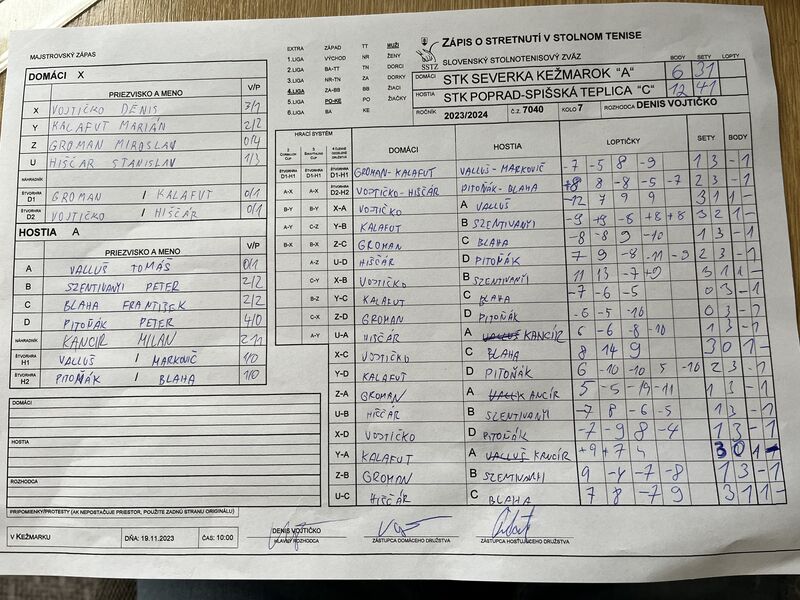 MAJSTROVSKÝ ZÁPAS
EXTRA ZÁPAD TT MUŽI
1.LIGA VÝCHOD NR ŽENY
2.LIGA BA-TT TN DORCI
3.LIGA NR-TN ZA DORKY
4.LIGA ZA-BB BB ŽIACI
5.LIGA PO-KE PO ŽIAČKY
6.LIGA BA KE
SSTZ
ZÁPIS O STRETNUTÍ V STOLNOM TENISE
SLOVENSKÝ STOLNOTENISOVÝ ZVÄZ
BODY SETY LOPTY
DOMÁCI STK SEVERKA KEŽMAROK "A" 6 31
HOSTIA STK POPRAD-SPIŠSKÁ TEPLICA "C" 12 41
ROČNÍK 2023/2024 Č.Z. 7040 KOLO 7 ROZHODCA DENIS VOJTIČKO
DOMÁCI X
PRIEZVISKO A MENO V/P
X VOJTIČKO DENIS 3/1
Y KALAFUT MARIÁN 2/2
Z GROMAN MIROSLAV 0/4
U HIŠČAR STANISLAV 1/3
NÁHRADNÍK
ŠTVORHRA D1 GROMAN / KALAFUT 0/1
ŠTVORHRA D2 VOJTIČKO / HIŠČÁR 0/1
HOSTIA A
PRIEZVISKO A MENO V/P
A VALLUŠ TOMÁŠ 0/1
B SZENTIVANYI PETER 2/2
C BLAHA FRANTIŠEK 2/2
D PITOŇÁK PETER 4/0
NÁHRADNÍK KANCIR MILAN 2/1
ŠTVORHRA H1 VALLUŠ / MARKOVIČ 1/0
ŠTVORHRA H2 PITOŇÁK / BLAHA 1/0
DOMÁCI
HOSTIA
ROZHODCA
PRIPOMIENKY/PROTESTY (AK NEPOSTAČUJE PRIESTOR, POUŽITE ZADNÚ STRANU ORIGINÁLU)
HRACÍ SYSTÉM
DOMÁCI HOSTIA LOPTIČKY SETY BODY
ŠTVORHRA D1-H1 GROMAN-KALAFUT VALLUŠ-MARKOVIČ -7 -5 8 -9 1 3 - 1
ŠTVORHRA D2-H2 VOJTIČKO-HIŠČÁR PITOŇÁK-BLAHA +8 8 -8 -5 -7 2 3 - 1
A-X A-X X-A VOJTIČKO A VALLUŠ -12 7 9 9 3 1 1 -
B-Y B-Y Y-B KALAFUT B SZENTIVANYI -9 +9 -8 +8 +8 3 2 1 -
A-Y C-Z Z-C GROMAN C BLAHA -8 -8 9 -10 1 3 - 1
B-X A-Z U-D HIŠČÁR D PITOŇÁK 7 9 -8 -11 -9 2 3 - 1
C-Y X-B VOJTIČKO B SZENTIVANYI 11 13 -7 +9 3 1 1 -
B-Z Y-C KALAFUT C BLAHA -7 -6 -5 0 3 - 1
C-X Z-D GROMAN D PITOŇÁK -6 -5 -10 0 3 - 1
A-Y U-A HIŠČÁR A VALLUŠ KANCÍR 6 -6 -8 -10 1 3 - 1
X-C VOJTIČKO C BLAHA 8 14 9 3 0 1 -
Y-D KALAFUT D PITOŇÁK 6 -10 -10 5 -10 2 3 - 1
Z-A GROMAN A KANCÍR 5 -5 -19 -11 1 3 - 1
U-B HIŠČÁR B SZENTIVANYI -7 8 -6 -5 1 3 - 1
X-D VOJTIČKO D PITOŇÁK -7 -9 8 -4 1 3 - 1
Y-A KALAFUT A VALLUŠ KANCÍR +9 +7 4 3 0 1 -
Z-B GROMAN B SZENTIVANYI 9 -4 -7 -8 1 3 - 1
U-C HIŠČÁR C BLAHA 7 8 -7 9 3 1 1 -
V KEŽMARKU DŇA: 19.11.2023 ČAS: 10:00
DENIS VOJTIČKO
HLAVNÝ ROZHODCA ZÁSTUPCA DOMÁCEHO DRUŽSTVA ZÁSTUPCA HOSŤUJÚCEHO DRUŽSTVA